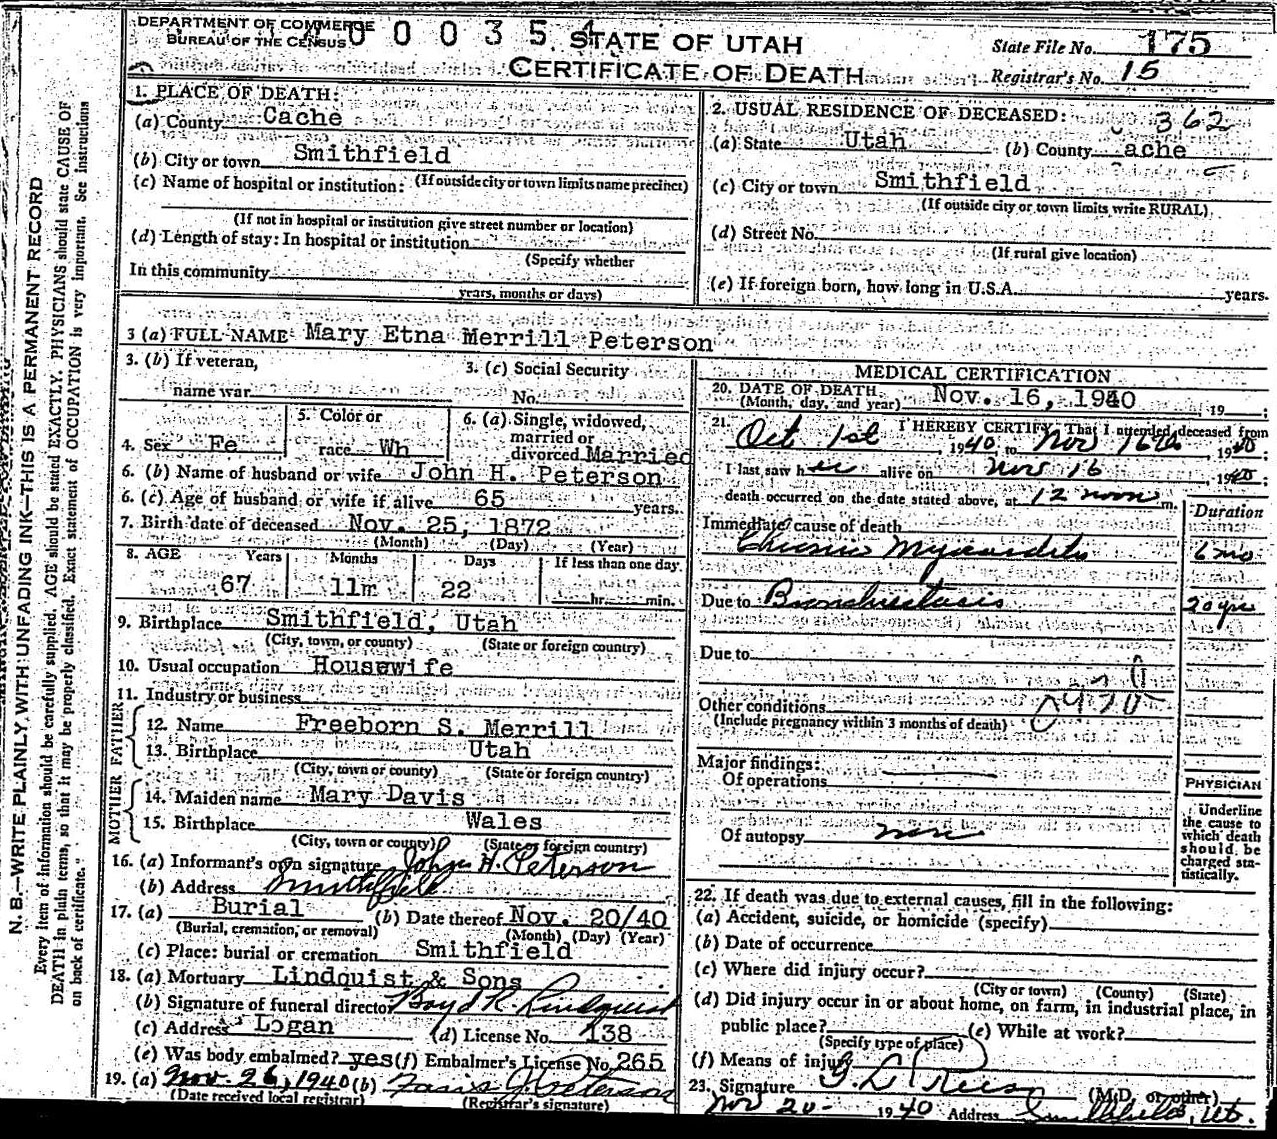 DEPARTMENT OF COMMERCE
BUREAU OF THE CENSUS
0 0 0 3 5 4
STATE OF UTAH
CERTIFICATE OF DEATH
State File No. 175
Registrar's No. 15
N. B.—WRITE PLAINLY, WITH UNFADING INK—THIS IS A PERMANENT RECORD
Every item of information should be carefully supplied. AGE should be stated EXACTLY. PHYSICIANS should state CAUSE OF
DEATH in plain terms, so that it may be properly classified. Exact statement of OCCUPATION is very important. See instructions
on back of certificate.
1. PLACE OF DEATH:
(a) County Cache
(b) City or town Smithfield
(c) Name of hospital or institution: (If outside city or town limits name precinct)
(If not in hospital or institution give street number or location)
(d) Length of stay: In hospital or institution
(Specify whether
In this community
years, months or days)
2. USUAL RESIDENCE OF DECEASED:
362
(a) State Utah (b) County ache
(c) City or town Smithfield
(If outside city or town limits write RURAL)
(d) Street No.
(If rural give location)
(e) If foreign born, how long in U.S.A. years.
3 (a) FULL NAME Mary Etna Merrill Peterson
3. (b) If veteran,
name war
3. (c) Social Security
No.
4. Sex Fe
5. Color or
race Wh
6. (a) Single, widowed,
married or
divorced Married
6. (b) Name of husband or wife John H. Peterson
6. (c) Age of husband or wife if alive 65 years.
7. Birth date of deceased Nov. 25, 1872
(Month) (Day) (Year)
8. AGE Years Months Days If less than one day
67 11m 22 hr. min.
9. Birthplace Smithfield, Utah
(City, town, or county) (State or foreign country)
10. Usual occupation Housewife
11. Industry or business
FATHER
12. Name Freeborn S. Merrill
13. Birthplace Utah
(City, town or county) (State or foreign country)
MOTHER
14. Maiden name Mary Davis
15. Birthplace Wales
(City, town or county) (State or foreign country)
16. (a) Informant's own signature John H. Peterson
(b) Address Smithfield
17. (a) Burial (b) Date thereof Nov. 20/40
(Burial, cremation, or removal) (Month) (Day) (Year)
(c) Place: burial or cremation Smithfield
18. (a) Mortuary Lindquist & Sons
(b) Signature of funeral director Boyd R Lindquist
(c) Address Logan (d) License No. 138
(e) Was body embalmed? yes (f) Embalmer's License No. 265
19. (a) Nov. 26, 1940 (b) Peterson
(Date received local registrar) (Registrar's signature)
MEDICAL CERTIFICATION
20. DATE OF DEATH
(Month, day, and year) Nov. 16, 1940 , 19 ;
21. I HEREBY CERTIFY, That I attended deceased from
Oct 1st , 1940 to Nov 16th , 1940;
I last saw h er alive on Nov 16 , 1940;
death occurred on the date stated above, at 12 noon m.
Duration
Immediate cause of death
Chronic Myocarditis 6 mo
Due to Bronchiectasis 20 yrs
Due to
Other conditions
(Include pregnancy within 3 months of death)
Major findings:
Of operations
Of autopsy none
PHYSICIAN
Underline
the cause to
which death
should be
charged sta-
tistically.
22. If death was due to external causes, fill in the following:
(a) Accident, suicide, or homicide (specify)
(b) Date of occurrence
(c) Where did injury occur?
(City or town) (County) (State)
(d) Did injury occur in or about home, on farm, in industrial place, in
public place? (e) While at work?
(Specify type of place)
(f) Means of injury
23. Signature G. L. Rees (M.D. or other)
Nov 20 - 1940 Address Smithfield, Ut.